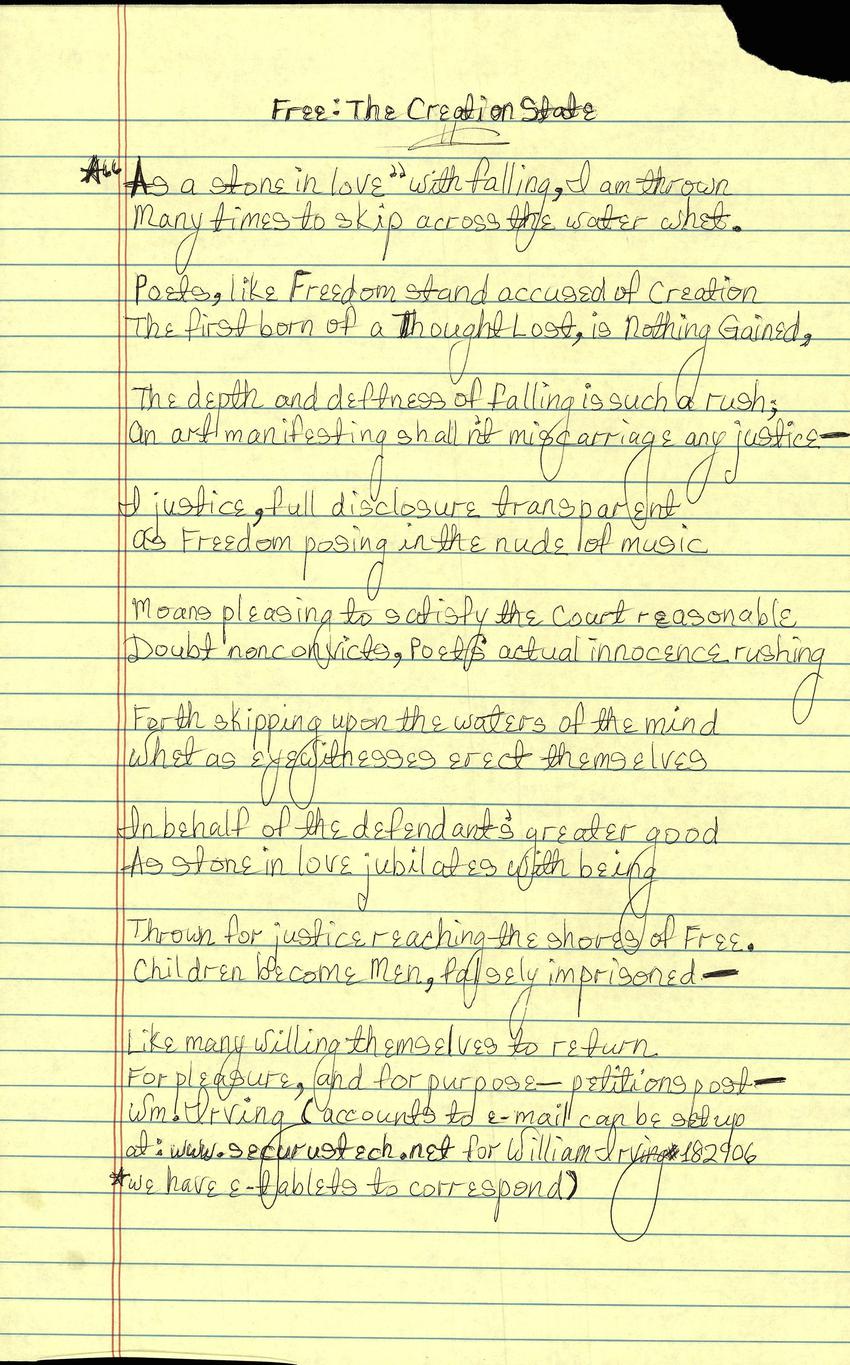 Free: The Creation State
*“As a stone in love” with falling, I am thrown
Many times to skip across the water whet.
Poets, like Freedom stand accused of Creation
The first born of a Thought Lost, is Nothing Gained,
The depth and deftness of falling is such a rush;
An art manifesting shall n't miscarriage any justice—
I justice, full disclosure transparent
as Freedom posing in the nude of music
Moans pleasing to satisfy the Court reasonable
Doubt nonconvicts, Poet's actual innocence rushing
Forth skipping upon the waters of the mind
Whet as eyewitnesses erect themselves
In behalf of the defendant's greater good
As stone in love jubilates with being
Thrown for justice reaching the shores of Free.
Children become Men, falsely imprisoned—
Like many willing themselves to return
For pleasure, and for purpose— petitions post—
Wm. Irving (accounts to e-mail can be set up
at: www.securustech.net for William Irving #182906
*we have e-tablets to correspond)